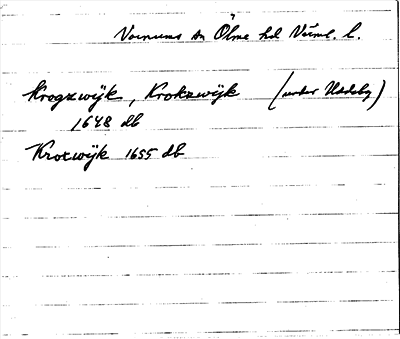 Varnums sn Ölme hd Värml. l.
Krogzwijk, Krokzwijk (under Hedeby)
1648 db
Kroxwijk 1655 db